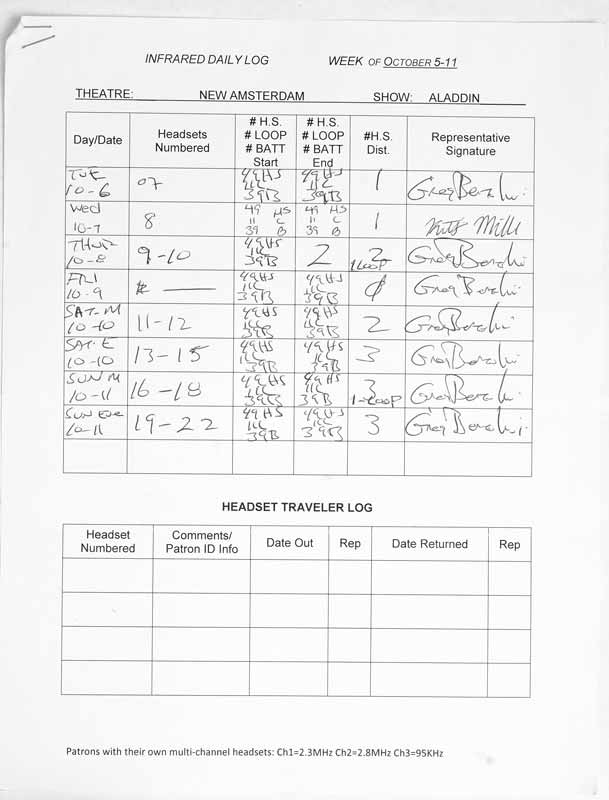 INFRARED DAILY LOG WEEK OF OCTOBER 5-11
THEATRE: NEW AMSTERDAM SHOW: ALADDIN
Day/Date Headsets Numbered # H.S. # LOOP # BATT Start # H.S. # LOOP # BATT End #H.S. Dist. Representative Signature
TUE 10-6 07 49HS 11C 39B 49HS 11C 39B 1
Wed 10-7 8 49 HS 11 C 39 B 49 HS 11 C 39 B 1
THUR 10-8 9-10 49HS 11C 39B 2 2 1 LOOP
FRI 10-9 49HS 11C 39B 49HS 11C 39B
SAT. M 10-10 11-12 49HS 11C 39B 49HS 11C 39B 2
SAT. E 10-10 13-15 49HS 11C 39B 49HS 11C 39B 3
SUN M 10-11 16-18 49HS 11C 39B 49HS 11C 39B 3 1-LOOP
SUN EVE 10-11 19-22 49HS 11C 39B 49HS 11C 39B 3
HEADSET TRAVELER LOG
Headset Numbered Comments/ Patron ID Info Date Out Rep Date Returned Rep
Patrons with their own multi-channel headsets: Ch1=2.3MHz Ch2=2.8MHz Ch3=95KHz